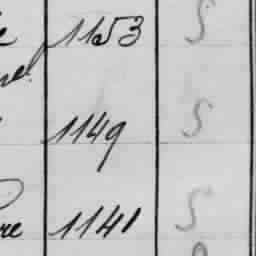 1153 S
1149 S
re 1141 S